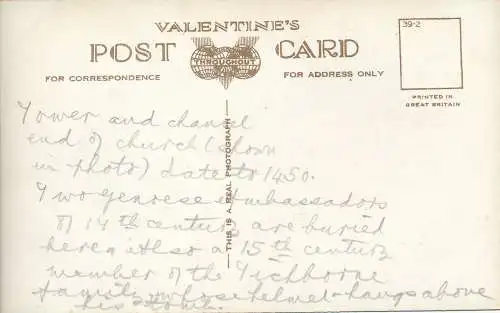 VALENTINE'S
POST CARD
THROUGHOUT
FOR CORRESPONDENCE
FOR ADDRESS ONLY
39-2
PRINTED IN
GREAT BRITAIN
THIS IS A REAL PHOTOGRAPH
Tower and chancel
end of church (shown
in photo) date to 1450.
Two genoese Ambassadors
of 14th century are buried
here. Also a 15th century
member of the Tichborne
family whose helmet hangs above
his tomb.